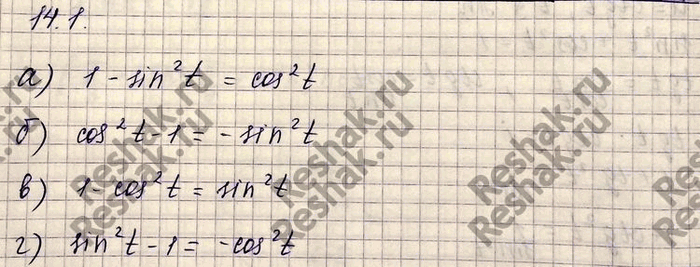 14.1.
а) 1 - sin²t = cos²t
б) cos²t - 1 = - sin²t
в) 1 - cos²t = sin²t
г) sin²t - 1 = - cos²t
Reshak.ru
Reshak.ru
Reshak.ru
Reshak.ru
Reshak.ru
Reshak.ru